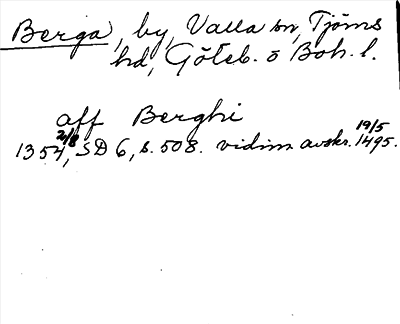 Berga, by, Valla sn, Tjörns
hd, Göteb. o Boh. l.
aff Berghi
1354 2/8, SD 6, s. 508. vidim. avskr. 19/5 1495.